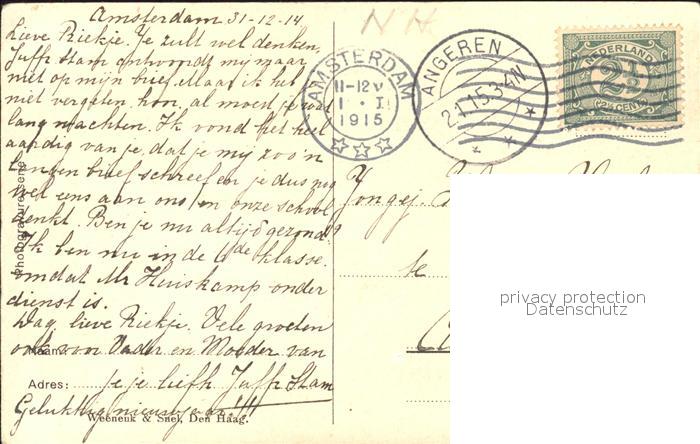 Amsterdam 31-12-14
Lieve Riekje. Je zult wel denken,
Juffr Stam antwoordt mij maar
niet op mijn brief. Maar ik heb
niet vergeten hoor, al moest je wat
lang wachten. Ik vond het heel
aardig van je, dat je mij zoo'n
langen brief schreef en je dus nog
wel eens aan ons en onze school
denkt. Ben je nu altijd gezond?
Ik ben nu in de 6de klasse.
omdat Mr Huiskamp onder
dienst is.
Dag, lieve Riekje. Vele groeten
ook voor Vader en Moeder van
Naam:
Adres: je je liefh. Juffr Stam
Gelukkig nieuwjaar!!!
Weenenk & Snel, Den Haag.
NH
AMSTERDAM
11-12 V
1 · I
1915
ANGEREN
2.1.15.3-4N
NEDERLAND
2½
(2½ CENT)
Jongej.
te
privacy protection
Datenschutz